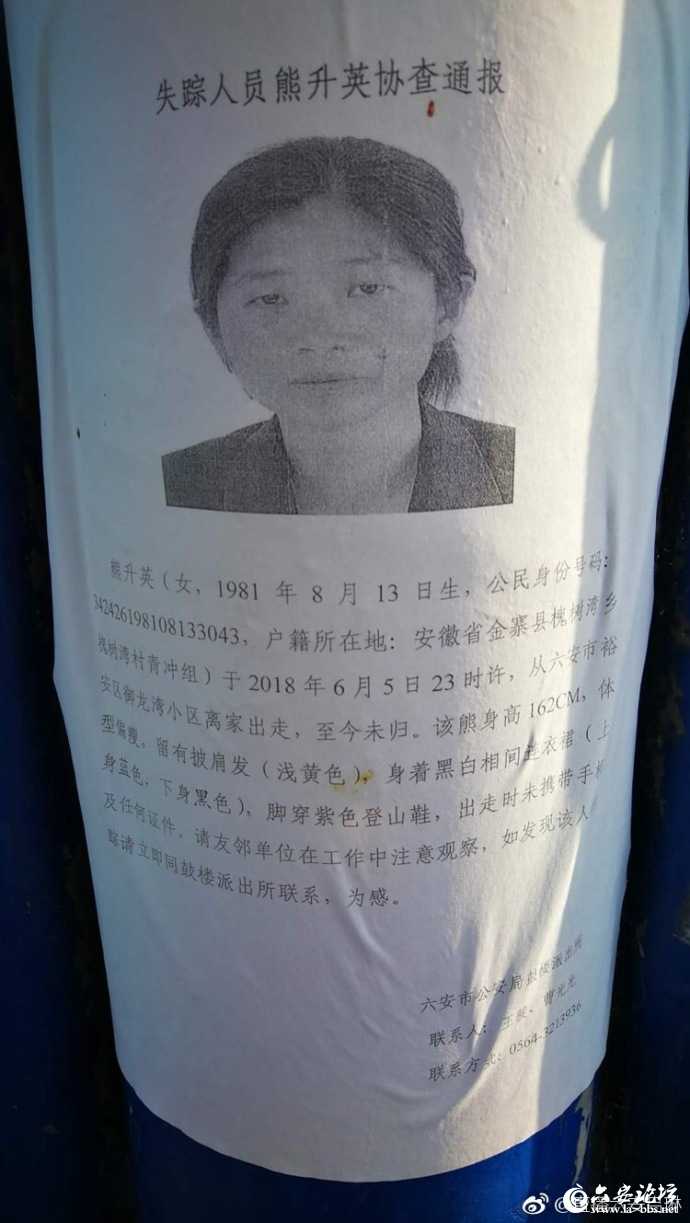 失踪人员熊升英协查通报
熊升英（女，1981 年 8 月 13 日生，公民身份号码：
342426198108133043，户籍所在地：安徽省金寨县槐树湾乡
槐树湾村青冲组）于 2018 年 6 月 5 日 23 时许，从六安市裕
安区御龙湾小区离家出走，至今未归。该熊身高 162CM，体
型偏瘦，留有披肩发（浅黄色），身着黑白相间连衣裙（上
身蓝色，下身黑色），脚穿紫色登山鞋，出走时未携带手机
及任何证件。请友邻单位在工作中注意观察，如发现该人
踪请立即同鼓楼派出所联系，为感。
六安市公安局鼓楼派出所
联系人：王 、曹光光
联系方式：0564-3213936
六安论坛
www.la-bbs.net